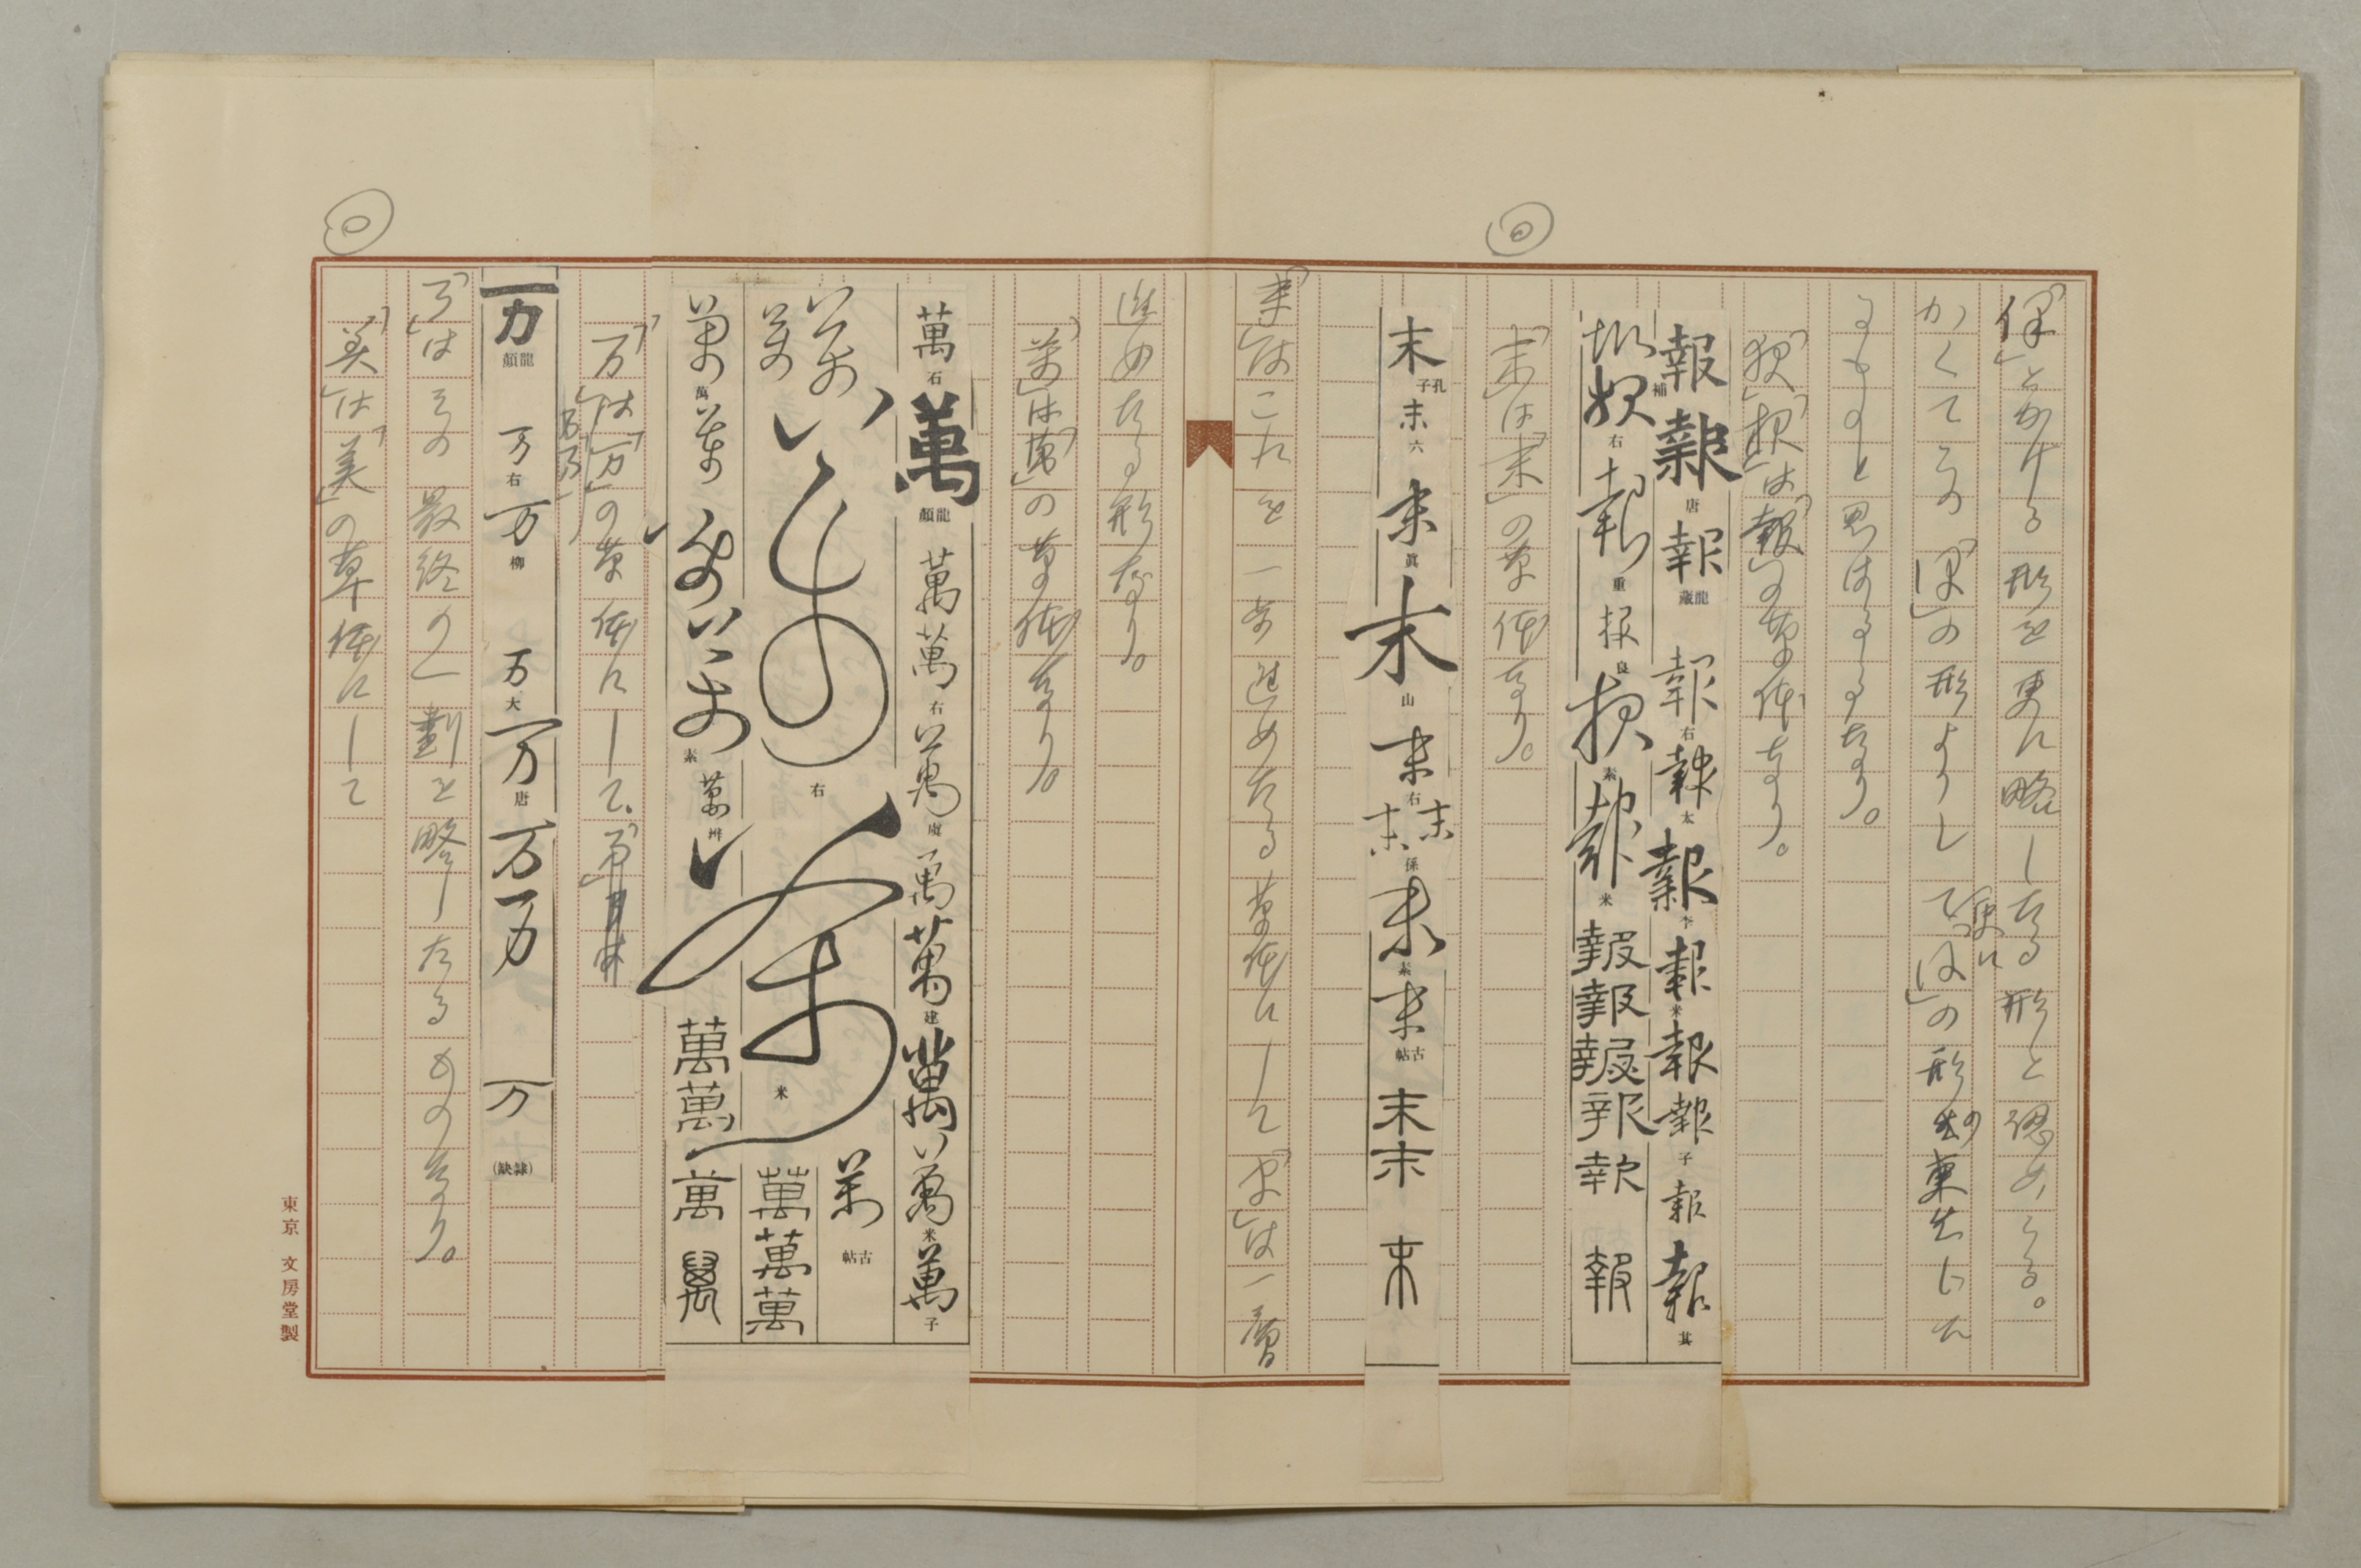 「保」とかける形を更に略したる形と認めらる。
かくてこの「」の形よりして、更に「」の形の案出した
るものと思はるゝなり。
「」「」は「報」の草体なり。
報 報 唐 報 蔵龍 報 右 報 太 報 李 報 米 報 報 子 報 報 其
補 報 右 報 重 报 良 报 素 報 米 報 報 報 報 報 報
「末」は「末」の草体なり。
末 子孔 末 六 末 眞 末 山 末 右 末 末 係 末 素 末 帖古 末 末 末
「末」はこれを一歩進めたる草体にして「」は一層
進めたる形なり。
「万」は「萬」の草体なり。
萬 石 萬 顔龍 萬 萬 右 萬 虞 萬 萬 建 萬 萬 米 萬 子
萬 萬 萬 右 萬 米 萬 帖古 萬 萬 萬
萬 萬 萬 萬 萬 素 萬 萬 萬 萬 萬
「万」は「万」の草体にして、「」
万 顔龍 万 右 万 柳 万 大 万 唐 万 万 万 (缺隷)
「」はその最終の一劃を略したるものなり。
「美」は「美」の草体にして
東京 文房堂製